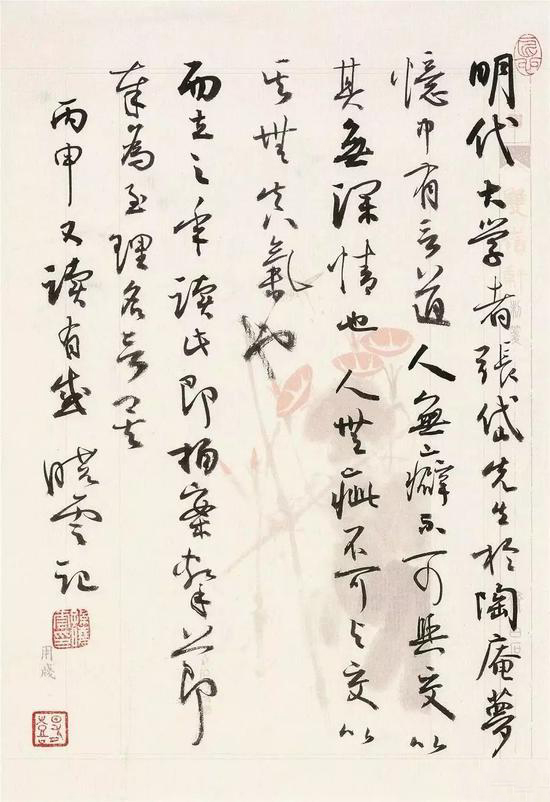 明代大学者張岱先生於陶庵夢
憶中有言道人無癖不可與交以
其無深情也人無疵不可与交以
其無真氣也
而立之年讀此即拍案擊節
奉為至理名言矣
丙申又讀有感 曉雲記
用牋